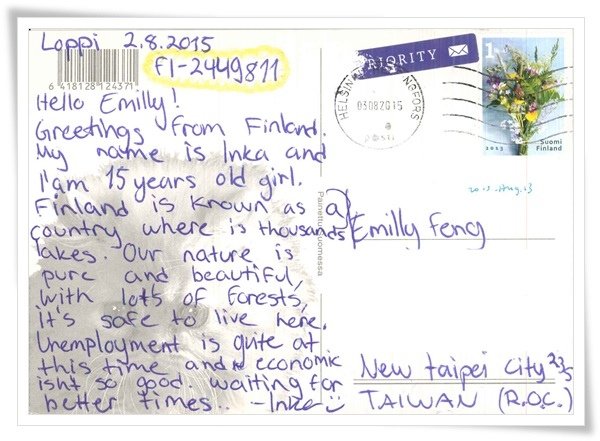 Loppi 2.8.2015
FI-2449811
6 418128 124371
Hello Emilly!
Greetings from Finland.
My name is Inka and
I'am 15 years old girl.
Finland is known as a
country where is thousands
lakes. Our nature is
pure and beautiful,
with lots of forests,
it's safe to live here.
Unemployment is quite at
this time and economic
isn't so good. waiting for
better times.. -Inka-
Painettu Suomessa
PRIORITY
HELSINKI HELSINGFORS
03082015
posti
1
2013
Suomi
Finland
2015.Aug.13
Emilly Feng
New taipei city 235
TAIWAN (R.O.C.)